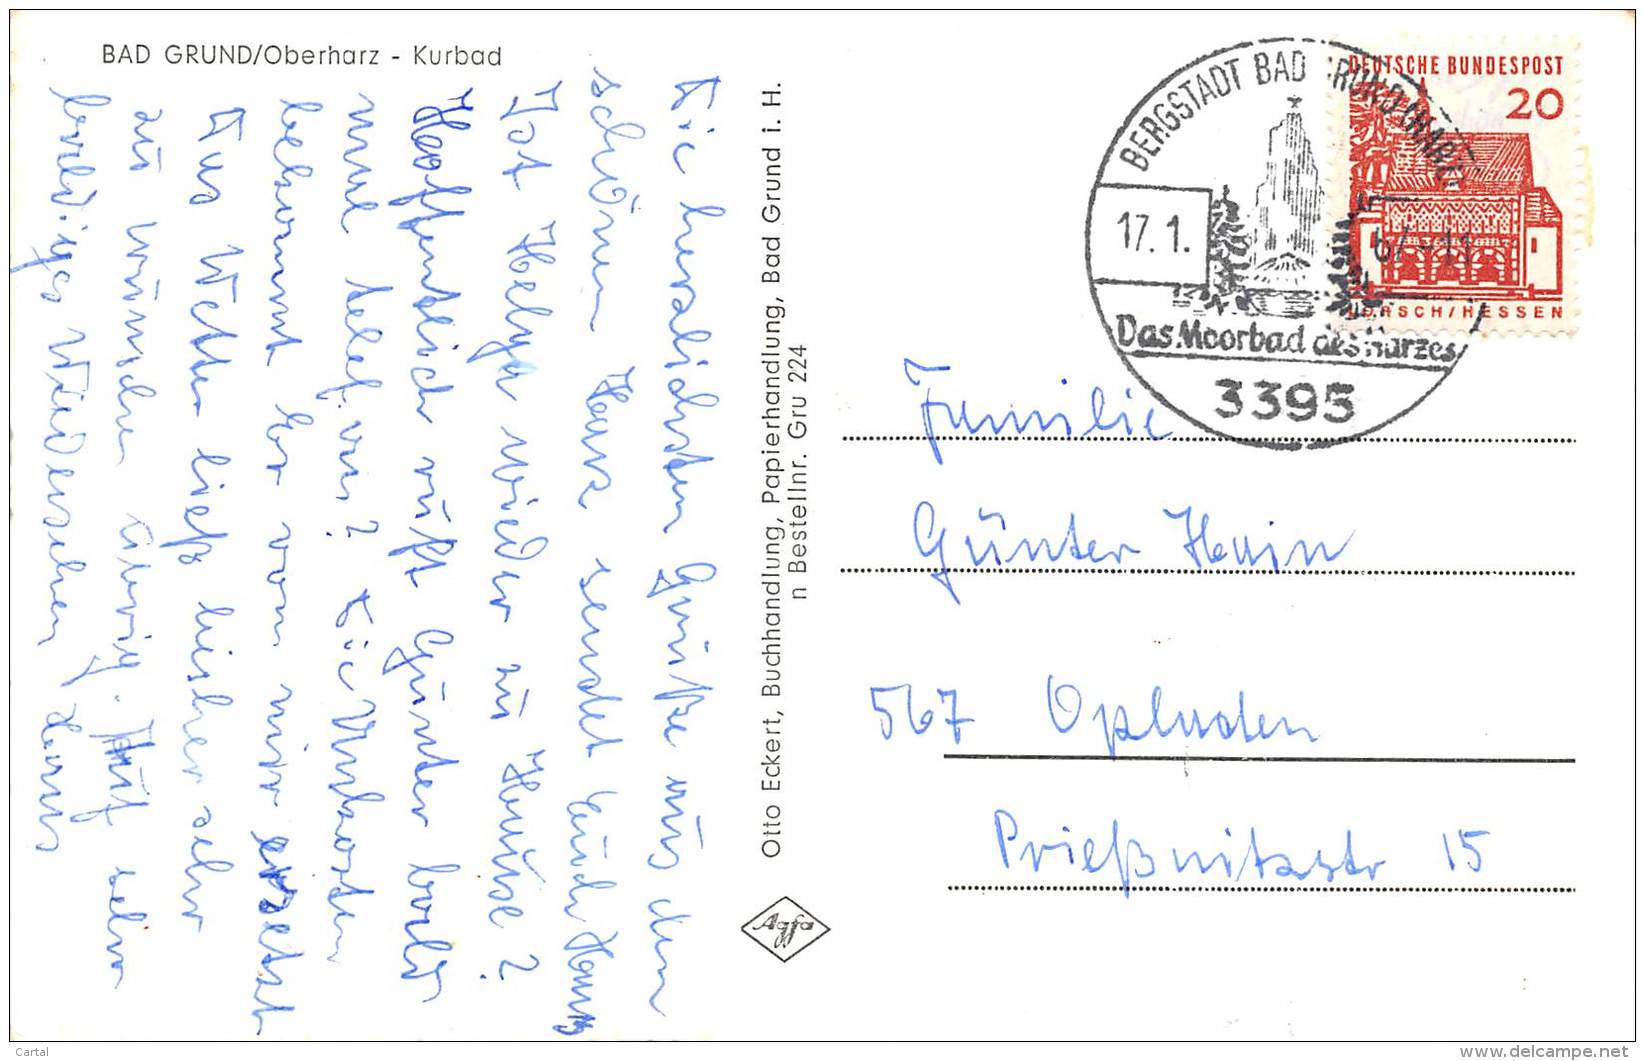 BAD GRUND/Oberharz - Kurbad
Die herzlichsten Grüße aus dem
schönen Harz sendet Euch Hans
Ist Helga wieder zu Hause?
Hoffentlich ruft Günter bald
mal telef. an? Die Unkosten
bekommt Er von mir ersetzt
Das Wetter ließ bisher sehr
zu wünschen übrig. Auf sehr
baldiges Wiedersehen
Hans
Otto Eckert, Buchhandlung, Papierhandlung, Bad Grund i. H.
n Bestellnr. Gru 224
Agfa
BERGSTADT BAD GRUND (HARZ)
17. 1. 67 - 11
Das Moorbad des Harzes
3395
DEUTSCHE BUNDESPOST
20
LORSCH/HESSEN
Familie
Günter Hein
567 Opladen
Prießnitzstr 15
Cartal
www.delcampe.net